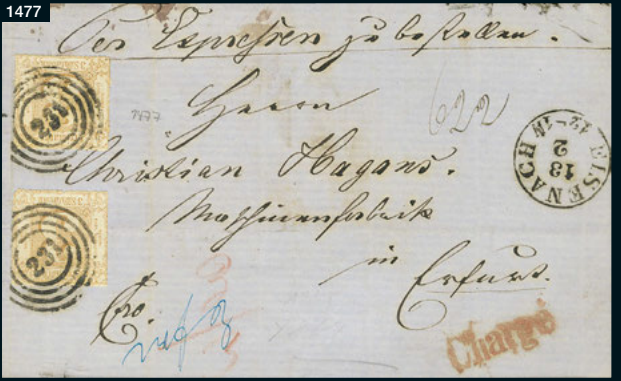 1477
Per Expressen zu bestellen.
Herrn
1477
622
Christian Hagans.
Maschinenfabrik
in
Erfurt.
fro.
231
231
EISENACH
13
2
12-1N
Chargé